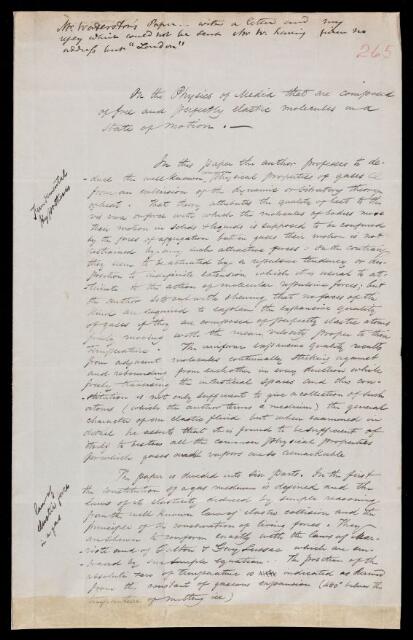 Mr Waterston's Paper – with a letter and my
reply which could not be sent Mr W. having given no
address but "London"
265
On the Physics of Media that are composed
of free and perfectly elastic molecules in a
State of Motion. —
Fundamental
Hypothesis
In this paper the author proposes to de-
duce the well known physical properties of gases
from an extension of the dynamic or vibratory theory
of heat. That theory attributes the quality of heat to the
vis viva or force with which the molecules of bodies move
their motion in solids & liquids is supposed to be confined
by the forces of aggregation but in gases their motion is not
restrained by any such attractive forces. On the contrary
they seem to be actuated by a repulsive tendency or dis-
position to indefinite extension which it is usual to at-
tribute to the action of molecular repulsive forces; but
the author sets out with shewing that no forces of the
kind are required to explain the expansive quality
of gases if they are composed of perfectly elastic atoms
freely moving with the mean velocity proper to their
temperature. The uniform expansive quality results
from adjacent molecules continually striking against
and rebounding from each other in every direction while
freely traversing the interstitial spaces and this con-
stitution is not only sufficient to give a collection of such
atoms (which the author terms a medium) the general
character of an elastic fluid but when examined in
detail he asserts that it is found to be sufficient
to bestow all the common physical properties
for which gases and vapors are so remarkable
Laws of
elastic force
in a gas
The paper is divided into six parts. In the first
the constitution of a gas medium is defined and the
laws of its elasticity deduced by simple reasoning
from the well known laws of elastic collision and the
principle of the conservation of living forces. They
are shewn to conform exactly with the laws of Mar-
riotte and of Dalton & Gay Lussac which are em-
braced by one simple equation. The position of the
absolute zero of temperature is indicated as derived
from the constant of gaseous expansion (461° below the
temperature of melting ice)